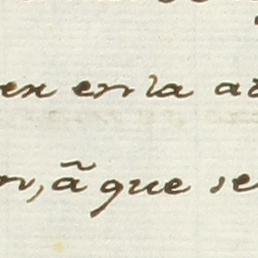 en en la a
n, ã que se